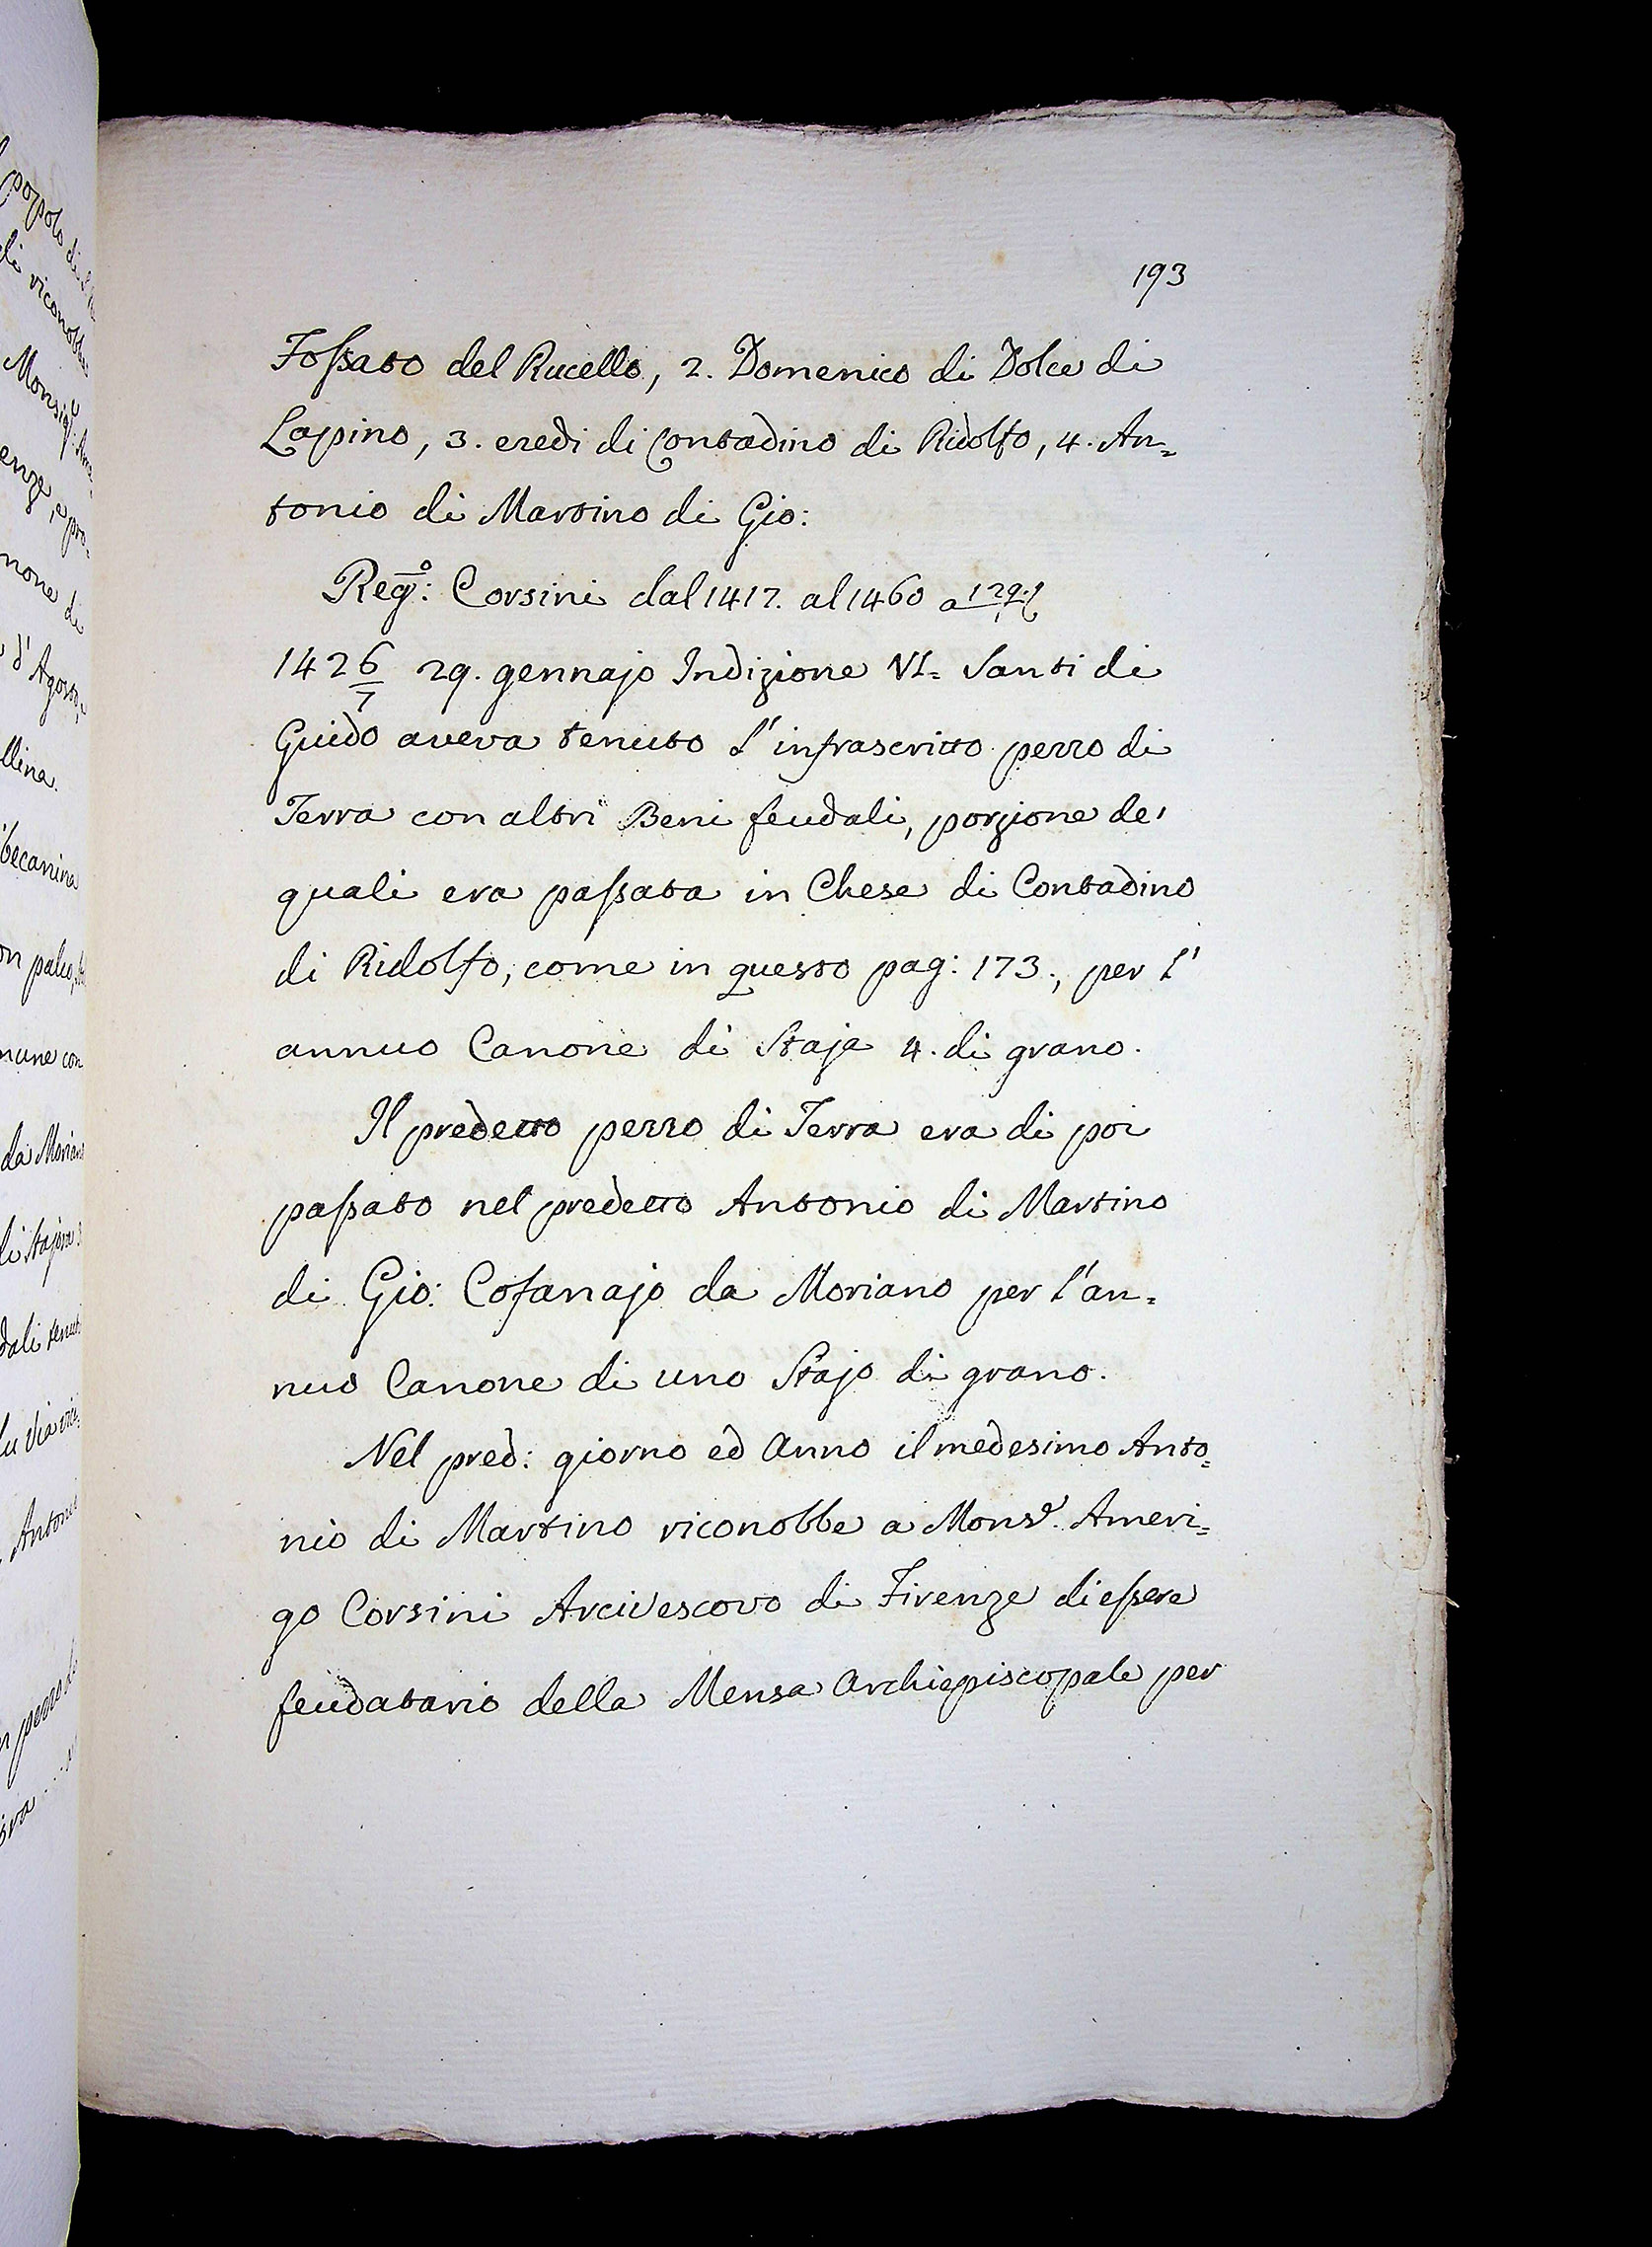 193
Fossato del Rucello, 2. Domenico di Dolce di
Lapino, 3. eredi di Contadino di Ridolfo, 4. An=
tonio di Martino di Gio:
Reg.º: Corsini dal 1417. al 1460 a 129.
1426/7 29. gennajo Indizione VI= Santi di
Guido aveva tenuto l'infrascritto pezzo di
Terra con altri Beni feudali, porzione de'
quali era passata in Chese di Contadino
di Ridolfo, come in questo pag: 173., per l'
annuo Canone di Staja 4. di grano.
Il predetto pezzo di Terra era di poi
passato nel predetto Antonio di Martino
di Gio: Cofanajo da Moriano per l'an=
nuo Canone di uno Stajo di grano.
Nel pred: giorno ed Anno il medesimo Anto=
nio di Martino riconobbe a Monsr. Ameri=
go Corsini Arcivescovo di Firenze di essere
feudatario della Mensa Archiepiscopale per